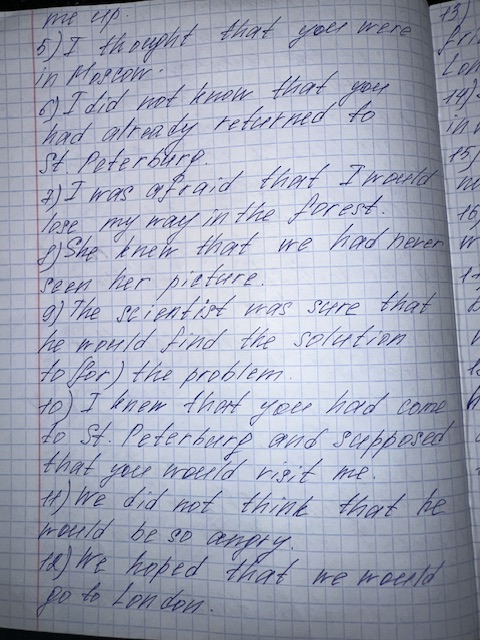 me up.
5) I thought that you were
in Moscow.
6) I did not know that you
had already returned to
St. Peterburg.
7) I was afraid that I would
lose my way in the forest.
8) She knew that we had never
seen her picture.
9) The scientist was sure that
he would find the solution
to (for) the problem.
10) I knew that you had come
to St. Peterburg and supposed
that you would visit me.
11) We did not think that he
would be so angry.
12) We hoped that we would
go to London.
13)
14)
15)
16)